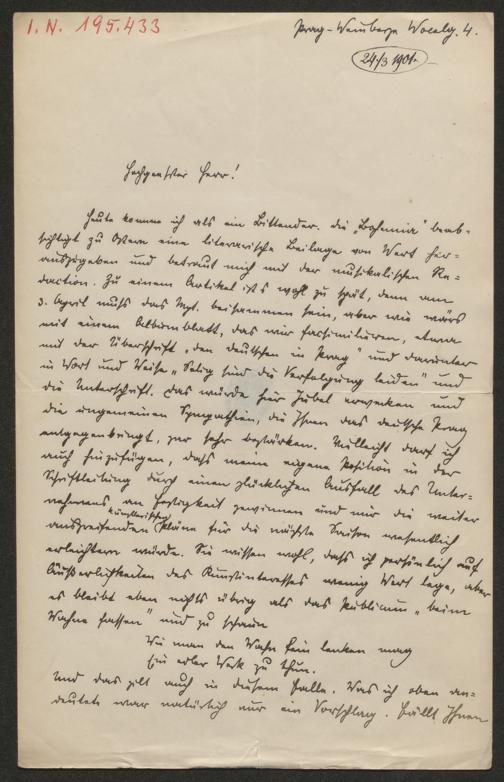 I. N. 195.433
Prag-Weinberge Vocelg. 4.
24/3 1901.
Hochgeehrter Herr!
Heute komme ich als ein Bittender. Die „Bohemia" beab-
sichtigt zu Ostern eine literarische Beilage von Wert her-
auszugeben und betraut mich mit der musikalischen Re-
daction. Zu einem Artikel ist's wohl zu spät, denn am
3. April muß das Mpt. beisammen sein, aber wie wärs
mit einem Albumblatt, das wir facsimiliren, etwa
mit der Überschrift „den Deutschen in Prag" und darunter
in Wort und Weise „Selig sind die Verfolgung leiden" und
die Unterschrift. Das würde hier Jubel erwecken und
die ungemeinen Sympathien, die Ihnen das deutsche Prag
entgegenbringt, nur sehr bestärken. Vielleicht darf ich
auch hinzufügen, daß meine eigene Position in der
Schriftleitung durch einen glücklichen Ausfall des Unter-
nehmens an Festigkeit gewinnen und mir die weiter
ausgreifenden künstlerischen Pläne für die nächste Saison wesentlich
erleichtern würde. Sie wissen wohl, daß ich persönlich auf
Äußerlichkeiten des Kunstinteresses wenig Wert lege, aber
es bleibt eben nichts übrig als das Publicum „beim
Wahne fassen" und zu schauen
Wie man den Wahn fein lenken mag
Ein edler Werk zu thun.
Und das gilt auch in diesem Falle. Was ich oben an-
deutete war natürlich nur ein Vorschlag. Fällt Ihnen